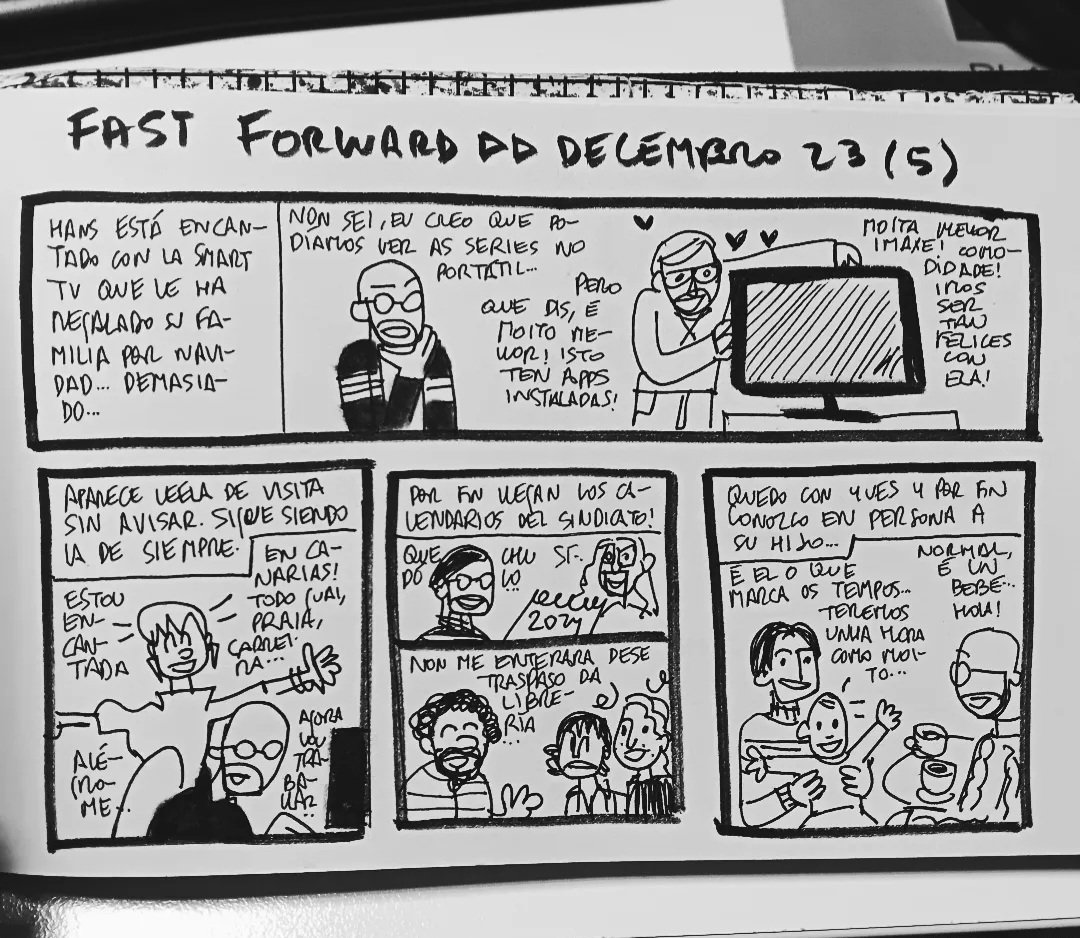 FAST FORWARD DD DECEMBRO 23 (5)
HANS ESTÁ ENCAN-
TADO CON LA SMART
TV QUE LE HA
REGALADO SU FA-
MILIA POR NAVI-
DAD... DEMASIA-
DO...
NON SEI, EU CREO QUE PO-
DIAMOS VER AS SERIES NO
PORTÁTIL...
PERO
QUE DIS, É
MOITO ME-
LLOR! ISTO
TEN APPS
INSTALADAS!
MOITA MELLOR
IMAXE! COMO-
DIDADE!
IMOS
SER
TAN
FELICES
CON
ELA!
APARECE LEELA DE VISITA
SIN AVISAR. SIGUE SIENDO
LA DE SIEMPRE.
ESTOU
EN-
CAN-
TADA
EN CA-
NARIAS!
TODO GUAI,
PRAIA,
CARREI-
RA...
ALÉ-
GRO-
ME...
AGORA
VOU
TRA-
BA-
LLAR..
POR FIN LLEGAN LOS CA-
LENDARIOS DEL SINDICATO!
QUE
DO
CHU
LO...
SI..
2024
NON ME ENTERARA DESE
TRASPASO DA
LIBRE-
RÍA
...
QUEDO CON YVES Y POR FIN
CONOZCO EN PERSONA A
SU HIJO...
É EL O QUE
MARCA OS TEMPOS...
TEREMOS
UNHA HORA
COMO MOI-
TO...
NORMAL,
É UN
BEBÉ...
HOLA!